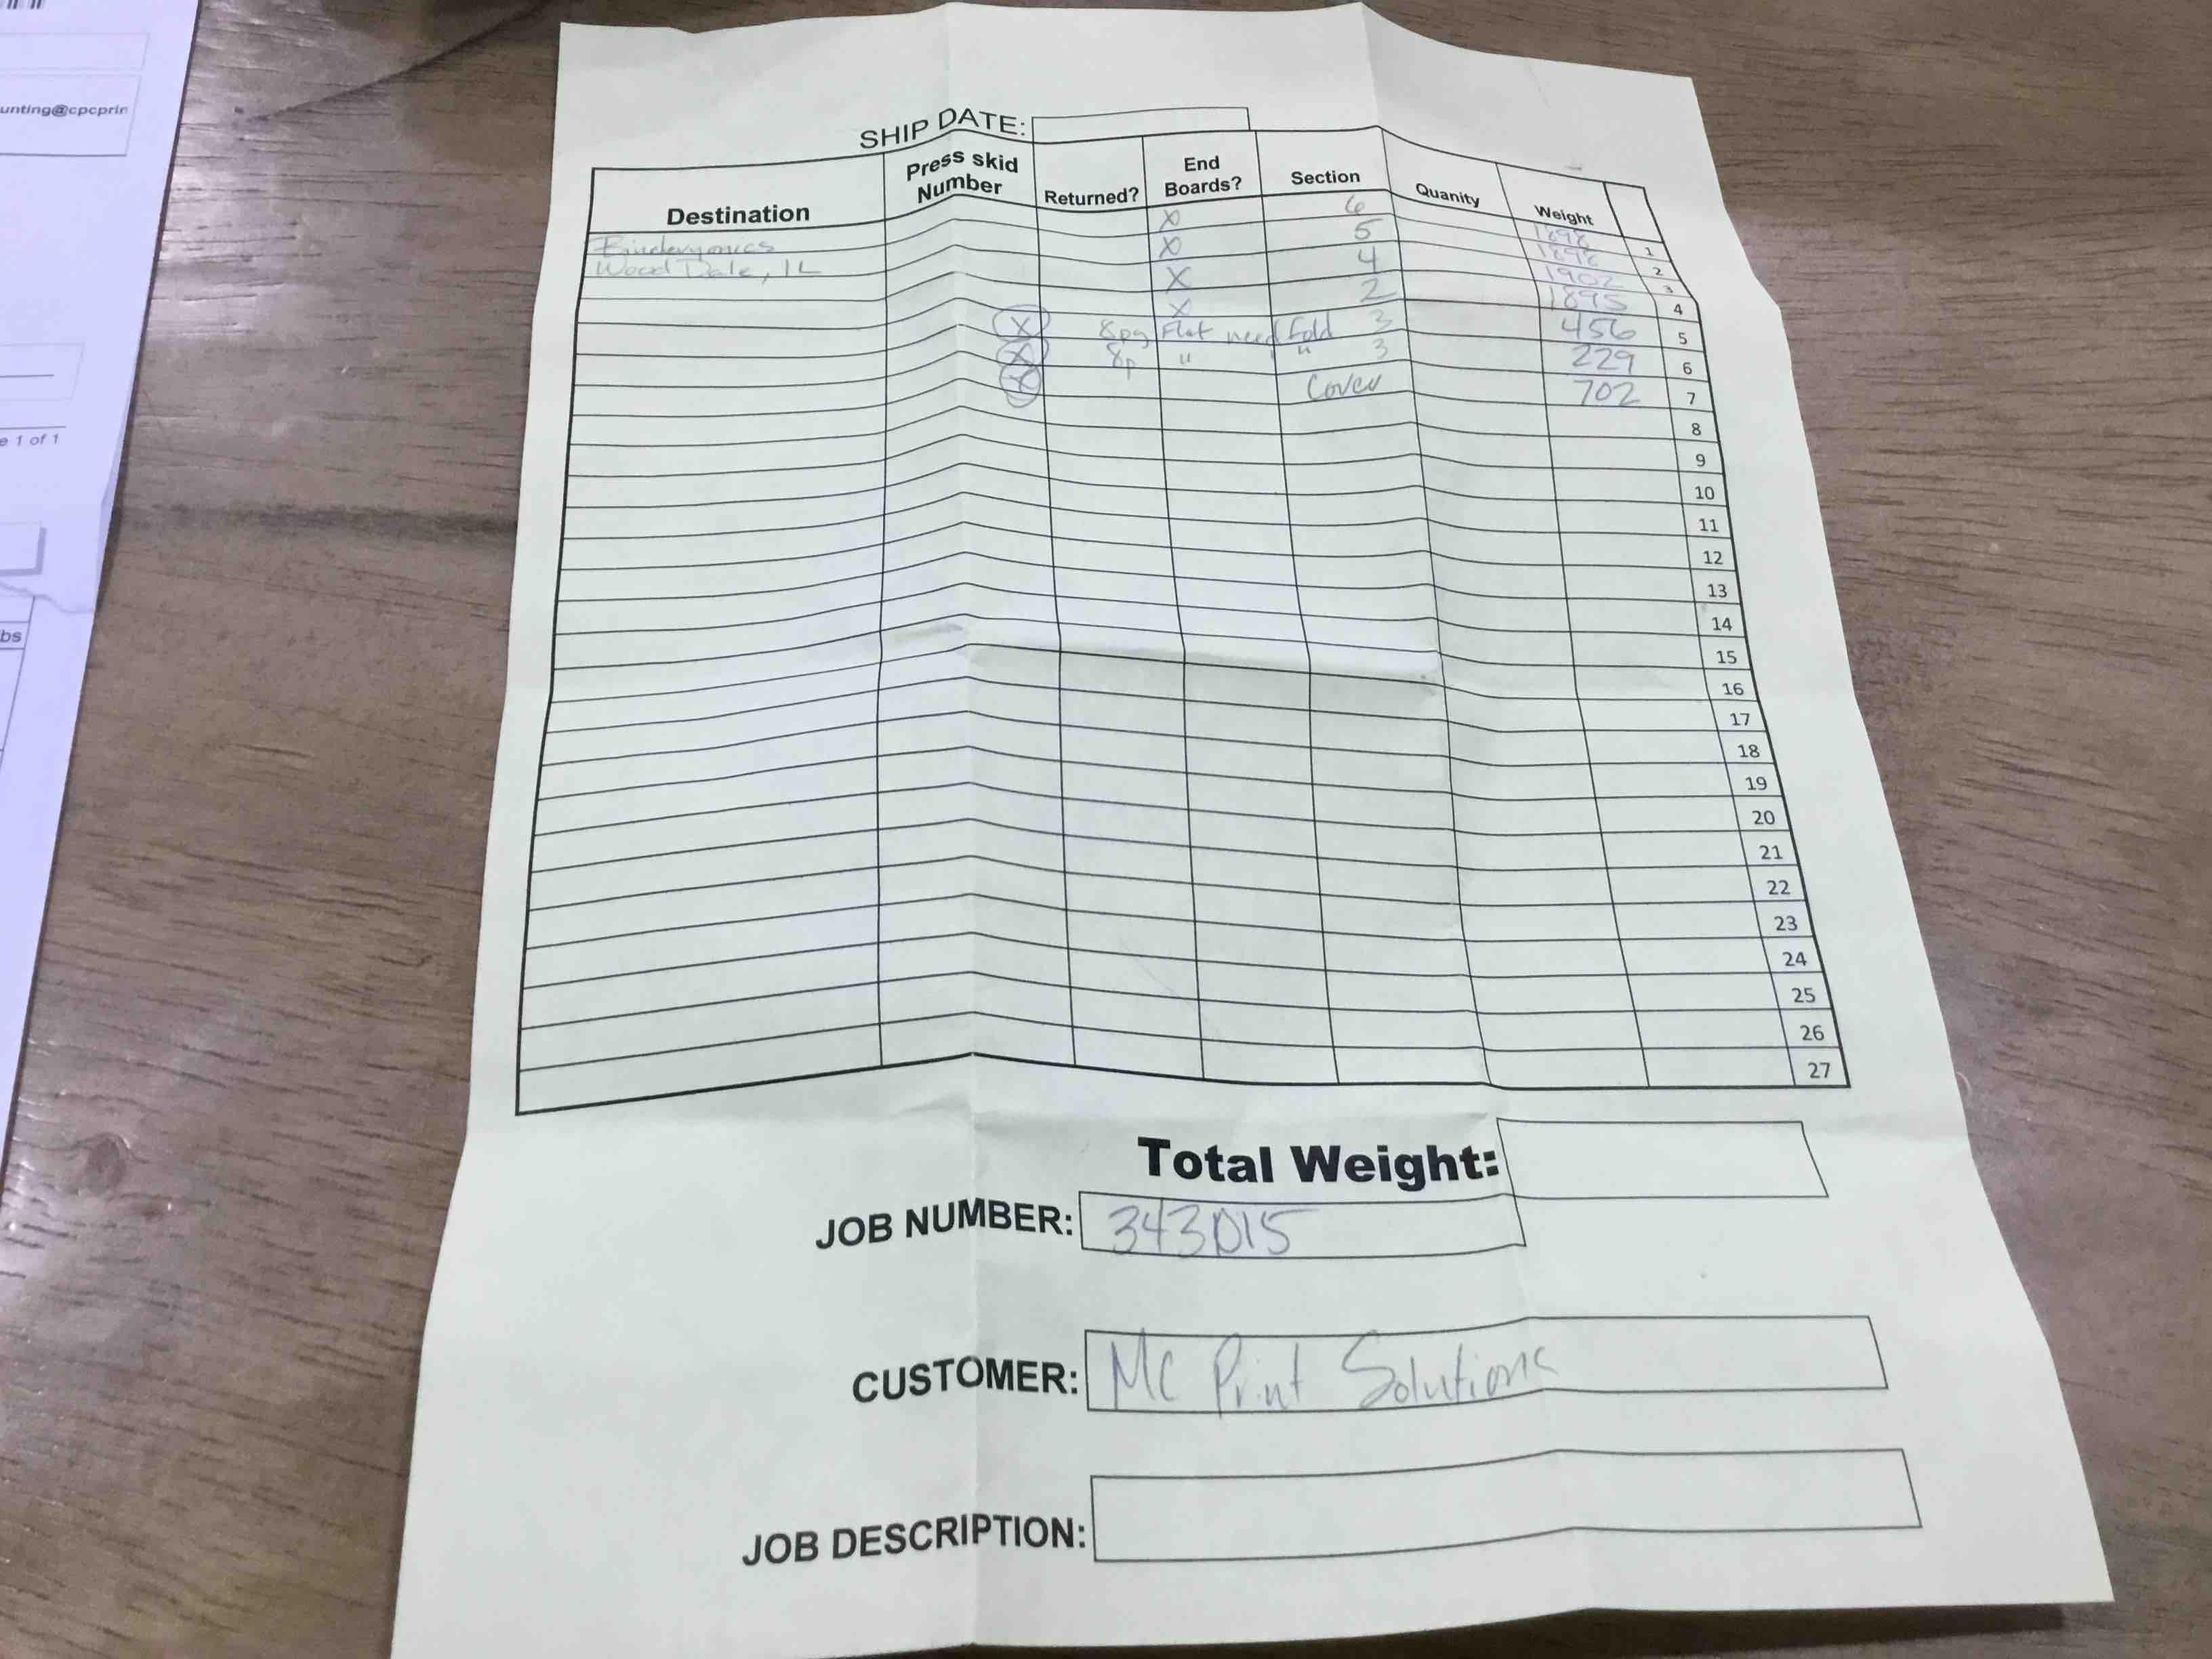 unting@cpcprin
e 1 of 1
bs
SHIP DATE:
Destination Press skid Number Returned? End Boards? Section Quanity Weight
Bindery​onics X 6 1898 1
Wood Dale, IL X 5 1898 2
X 4 1902 3
X 2 1895 4
X 8pg Flat need Fold 3 456 5
X 8p " " 3 229 6
X Cover 702 7
8
9
10
11
12
13
14
15
16
17
18
19
20
21
22
23
24
25
26
27
Total Weight:
JOB NUMBER: 343015
CUSTOMER: MC Print Solutions
JOB DESCRIPTION: